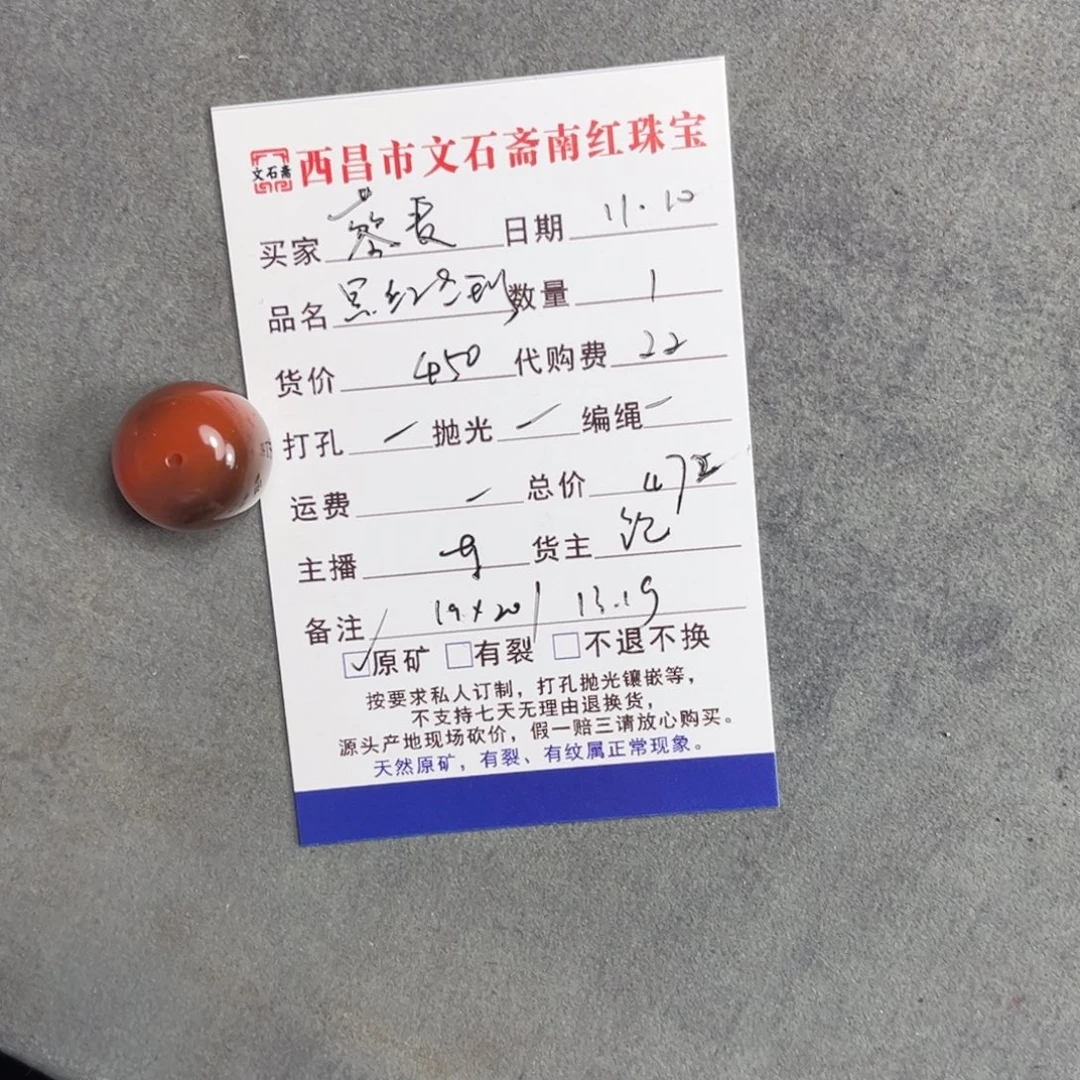 文石斋 西昌市文石斋南红珠宝
买家 日期 11.10
品名 数量 1
货价 450 代购费 22
打孔 抛光 编绳
运费 总价 472
主播 货主
备注 19×20 13.19
原矿 有裂 不退不换
按要求私人订制，打孔抛光镶嵌等，
不支持七天无理由退换货，
源头产地现场砍价，假一赔三请放心购买。
天然原矿，有裂、有纹属正常现象。